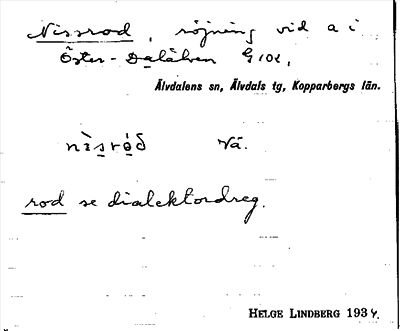 Nissrod, röjning vid a i
Öster-Dalälven G 10d,
Älvdalens sn, Älvdals tg, Kopparbergs län.
nìsród Vä.
rod se dialektordreg.
HELGE LINDBERG 1934.